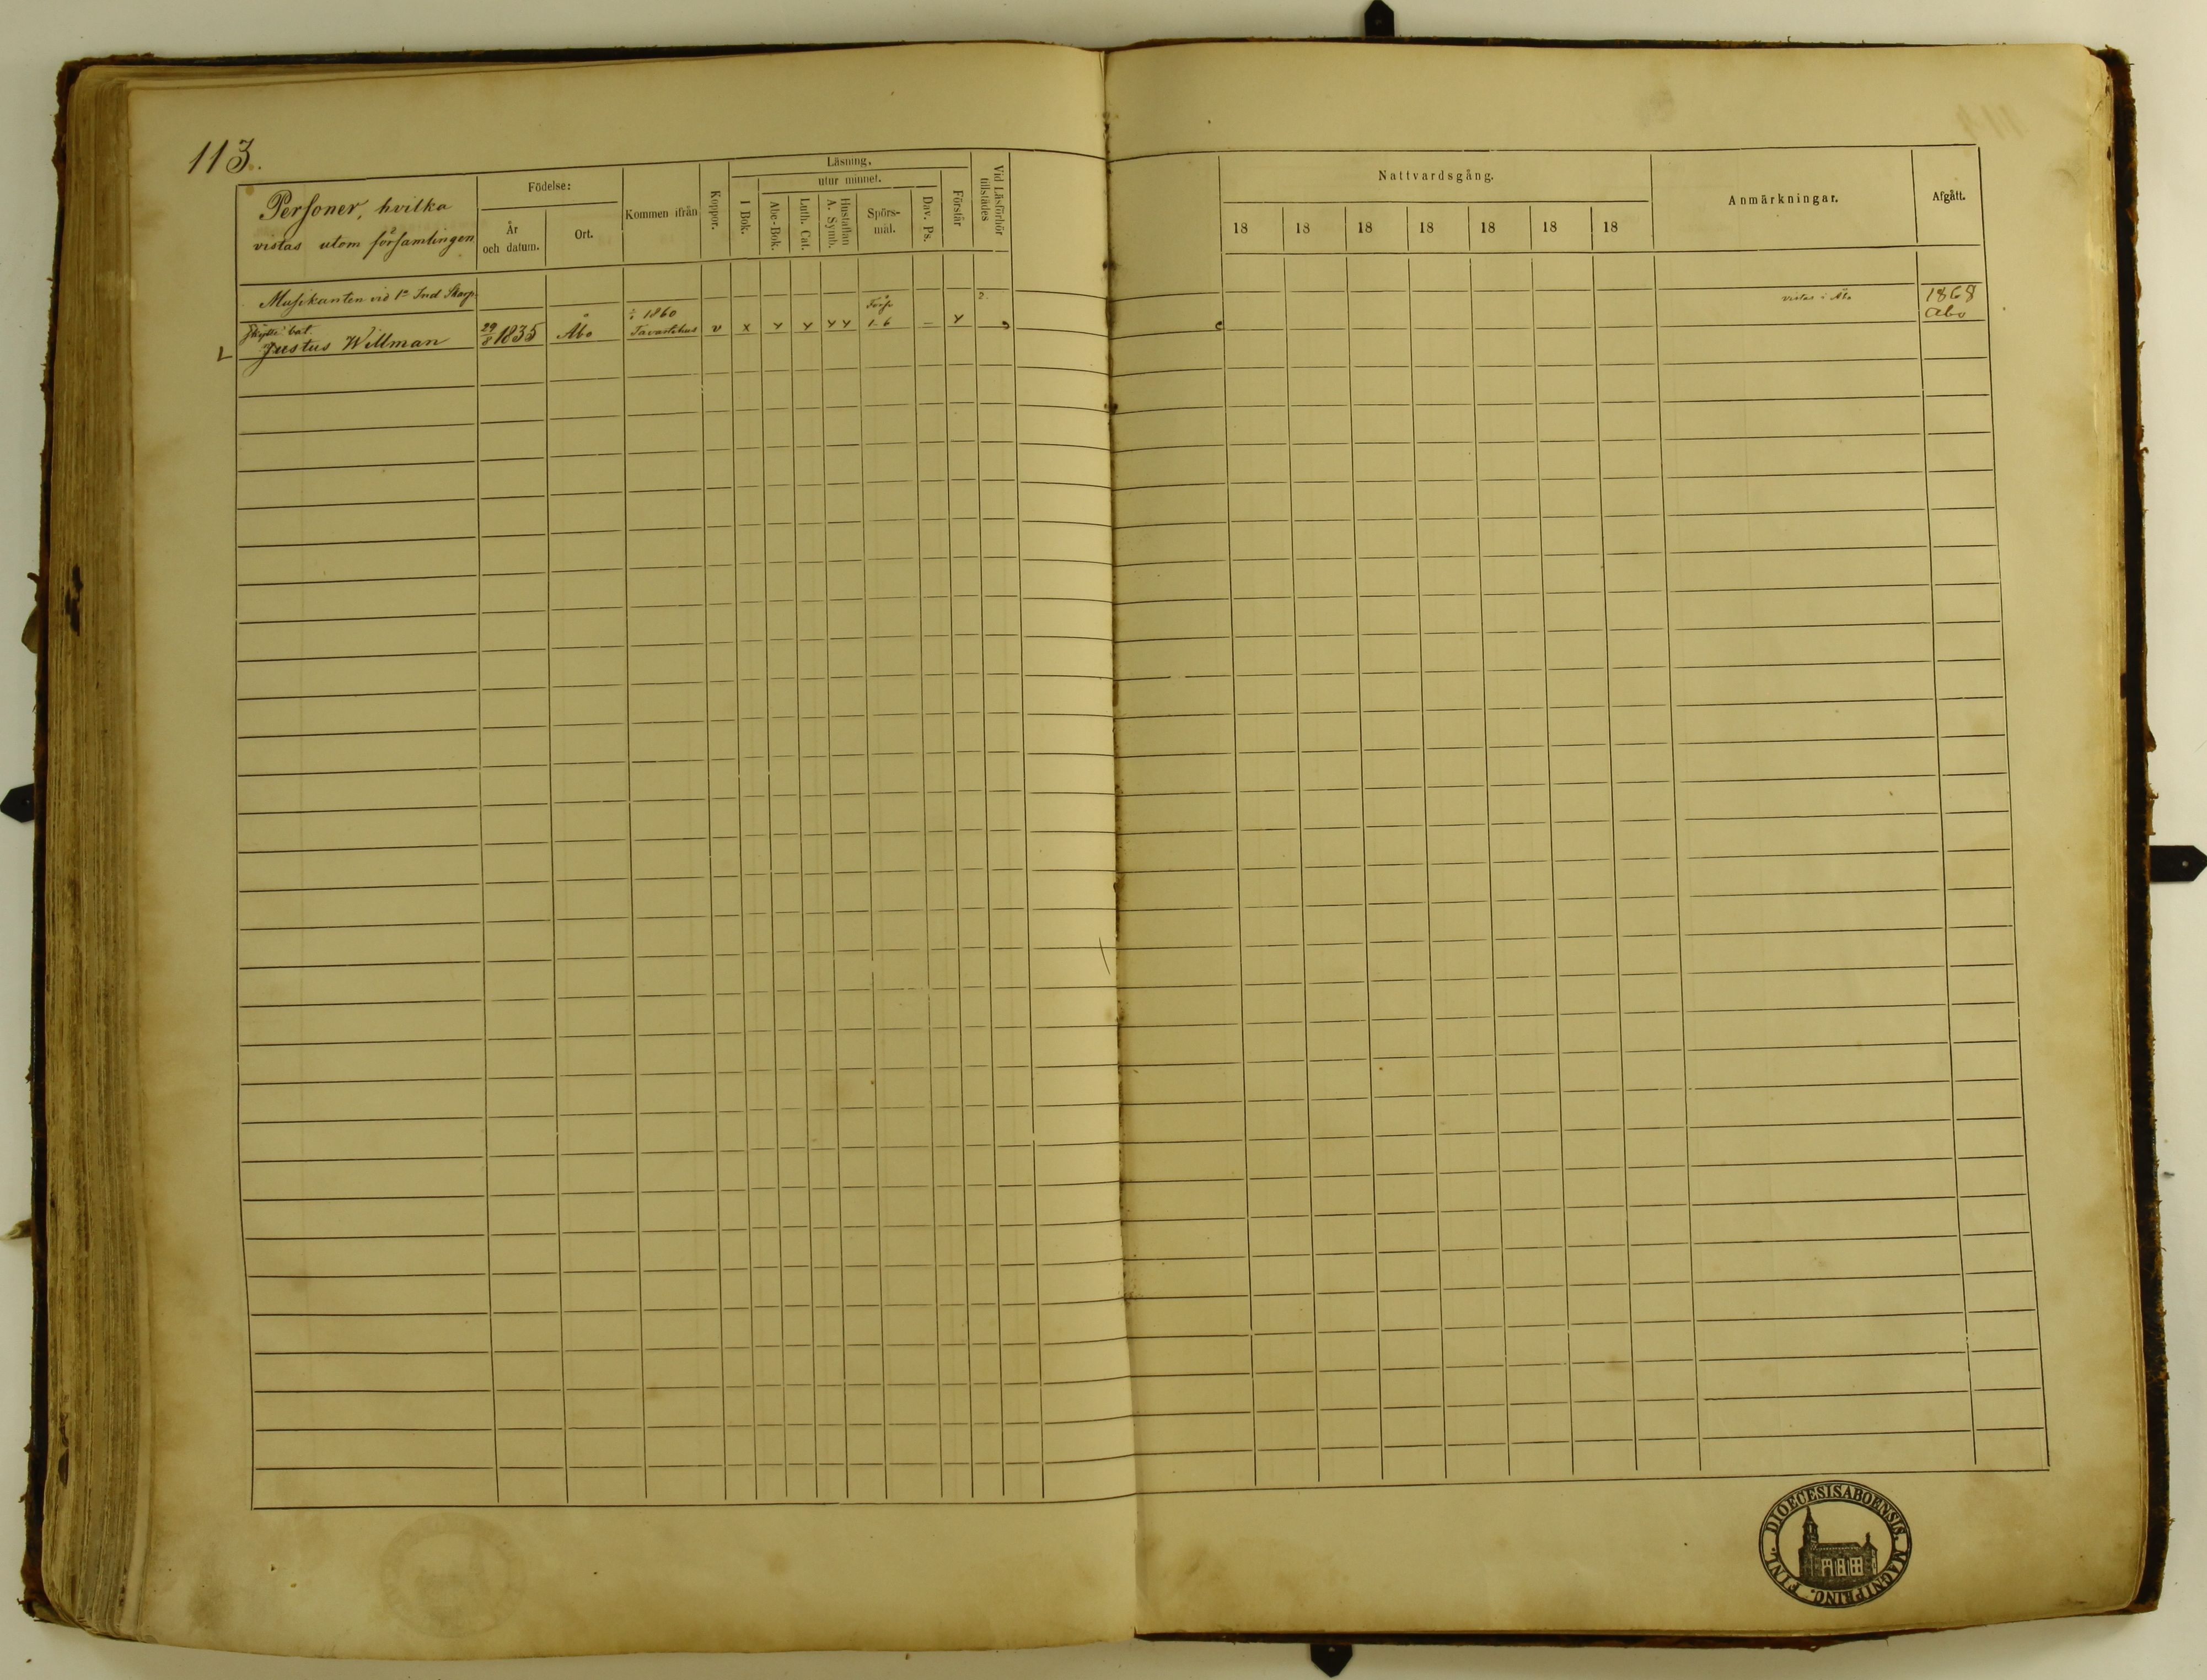 113.
Personer, hvilka
vistas utom församlingen
Födelse:
År
och datum.
Ort.
Kommen ifrån
Koppor.
Läsning.
utur minnet.
I Bok.
Abc-Bok.
Luth. Cat.
Hustaflan
A. Symb.
Spörs-
mål.
Dav. Ps.
Förstår
Vid Läsförhör
tillstädes
Nattvardsgång.
18 18 18 18 18 18 18
Anmärkningar.
Afgått.
Musikanten vid 1a Ind Skarp.
Skytte bat.
Justus Willman
29/8 1835
Åbo
1860
Tavastehus
v x y y y y
1-6
—
y
2.
vistas i Åbo
1868
Åbo
DIOECESIS ABOENSIS. MAGNI PRINC. FINL.